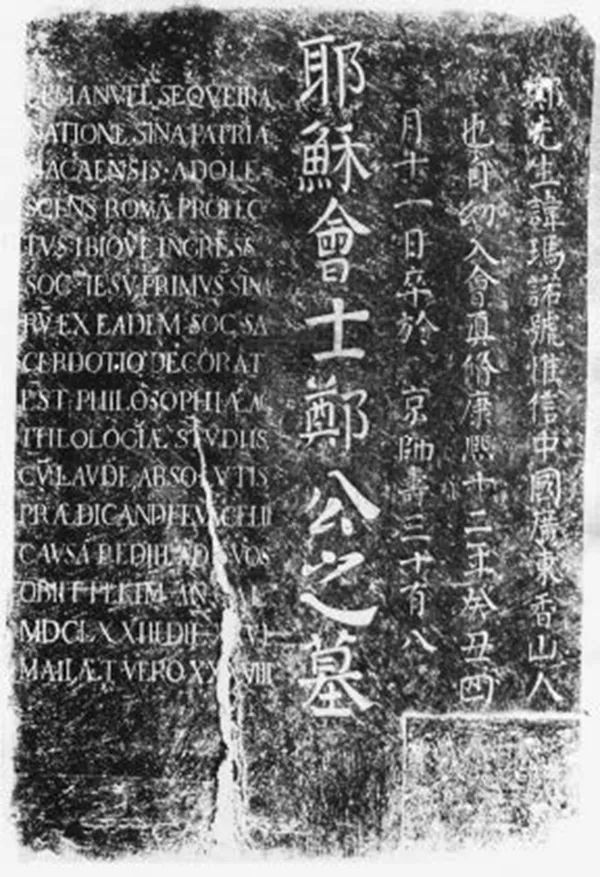 鄭先生諱瑪諾號惟信中國廣東香山人
也自幼入會真修康熙十二年癸丑四
月十一日卒於 京師壽三十有八
耶穌會士鄭公之墓
EMANVEL SEQVEIRA
NATIONE SINA PATRIA
MACAENSIS·ADOLE
SCENS ROMÃ PROFEC
TVS IBIQVE INGRESS
SOC· IESV PRIMVS SINA
RṼ EX EADEM SOC SA
CERDOTIO DECORAT
EST PHILOSOPHIÆ AC
THEOLOGIÆ STVDIIS
CṼ LAVDE ABSOLVTIS
PRÆDICANDI EVANGELII
CAVSÃ REDIIT AD SVOS
OBIIT PEKIM AN
MDCLXXIII DIE
MAII ÆT VERO XXXVIII